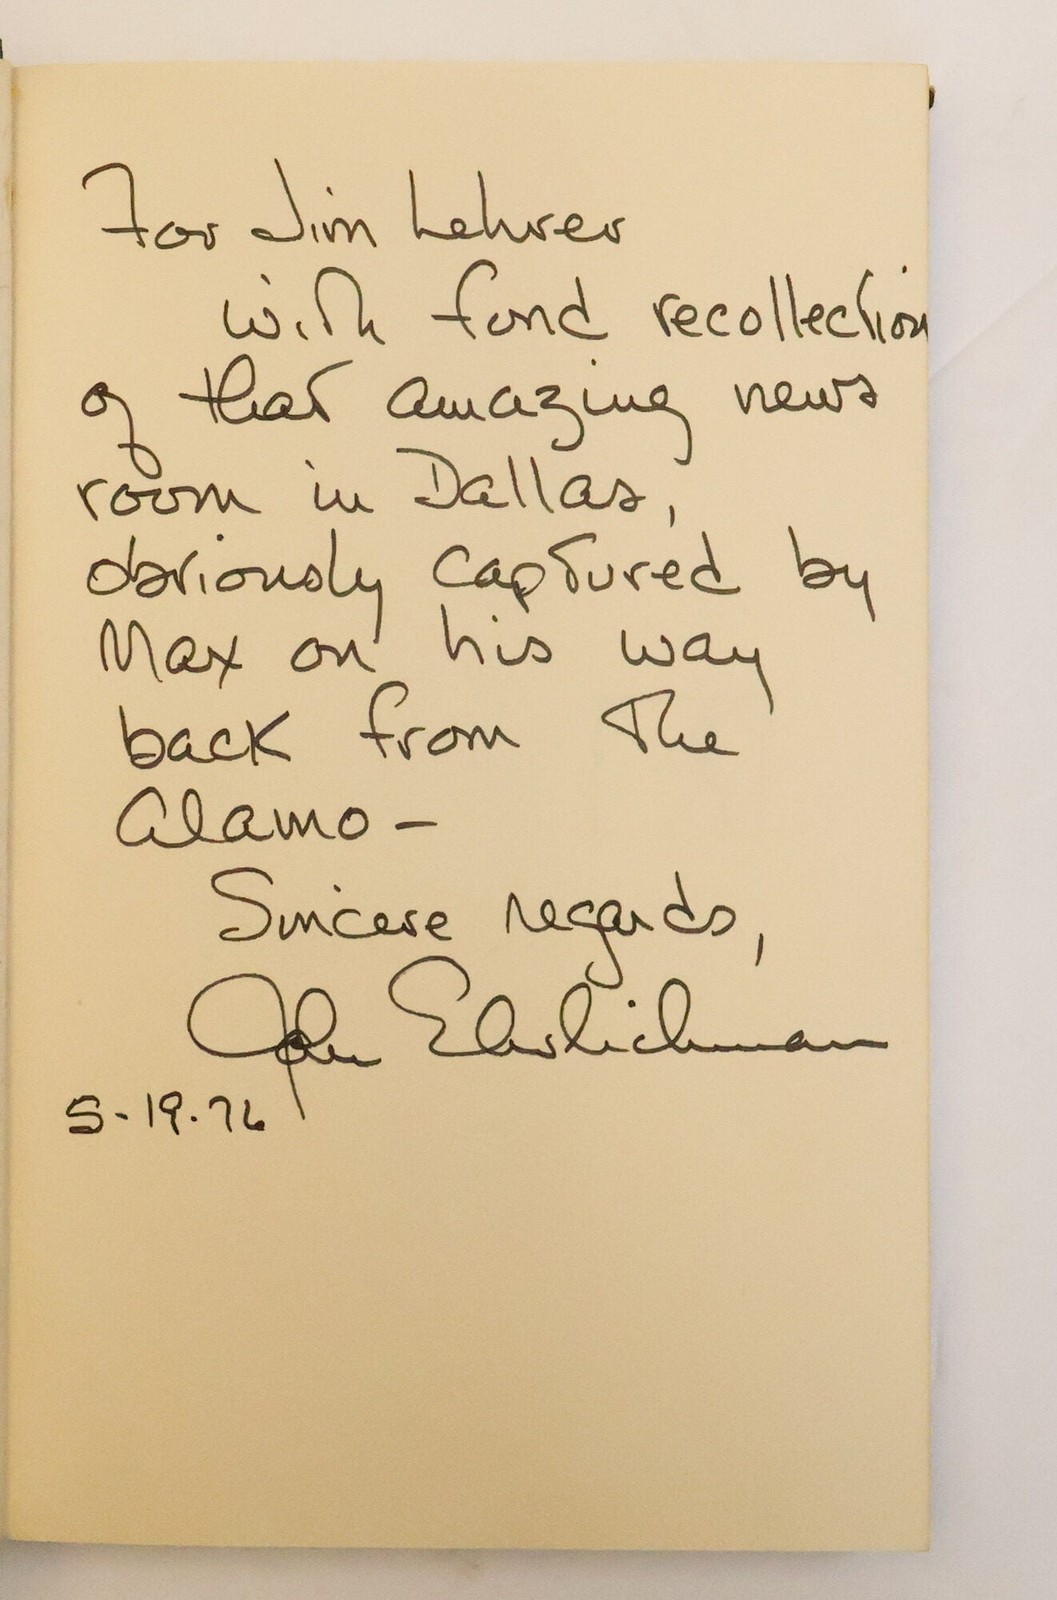 For Jim Lehrer
with fond recollection
of that amazing news
room in Dallas,
obviously captured by
Max on his way
back from The
Alamo –
Sincere regards,
John Ehrlichman
5-19-76